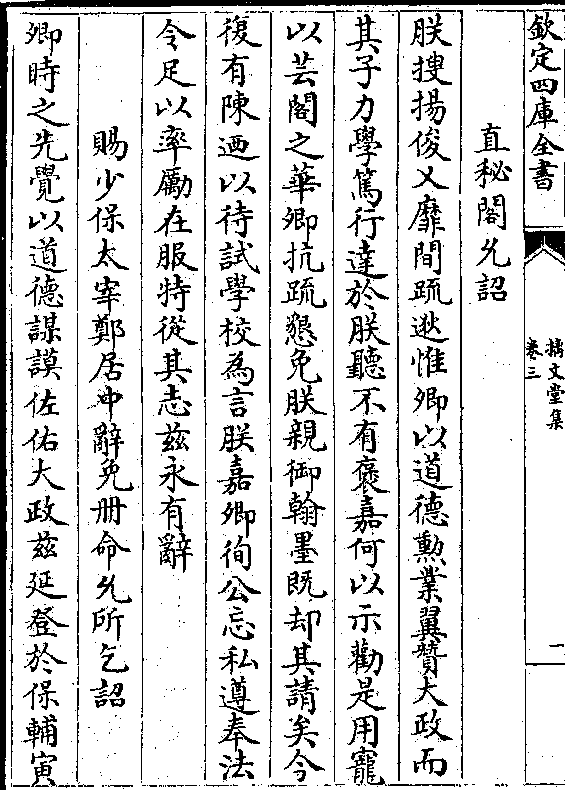 欽定四庫全書
摛文堂集
卷三
一
直秘閣允詔
朕搜揚俊乂靡間疏逖惟卿以道德勲業翼贊大政而
其子力學篤行達於朕聽不有褒嘉何以示勸是用寵
以芸閣之華卿抗疏懇免朕親御翰墨既却其請矣今
復有陳迺以待試學校為言朕嘉卿徇公忘私遵奉法
令足以率厲在服特從其志茲永有辭
賜少保太宰鄭居中辭免册命允所乞詔
卿時之先覺以道德謀謨佐佑大政茲延登於保輔寅